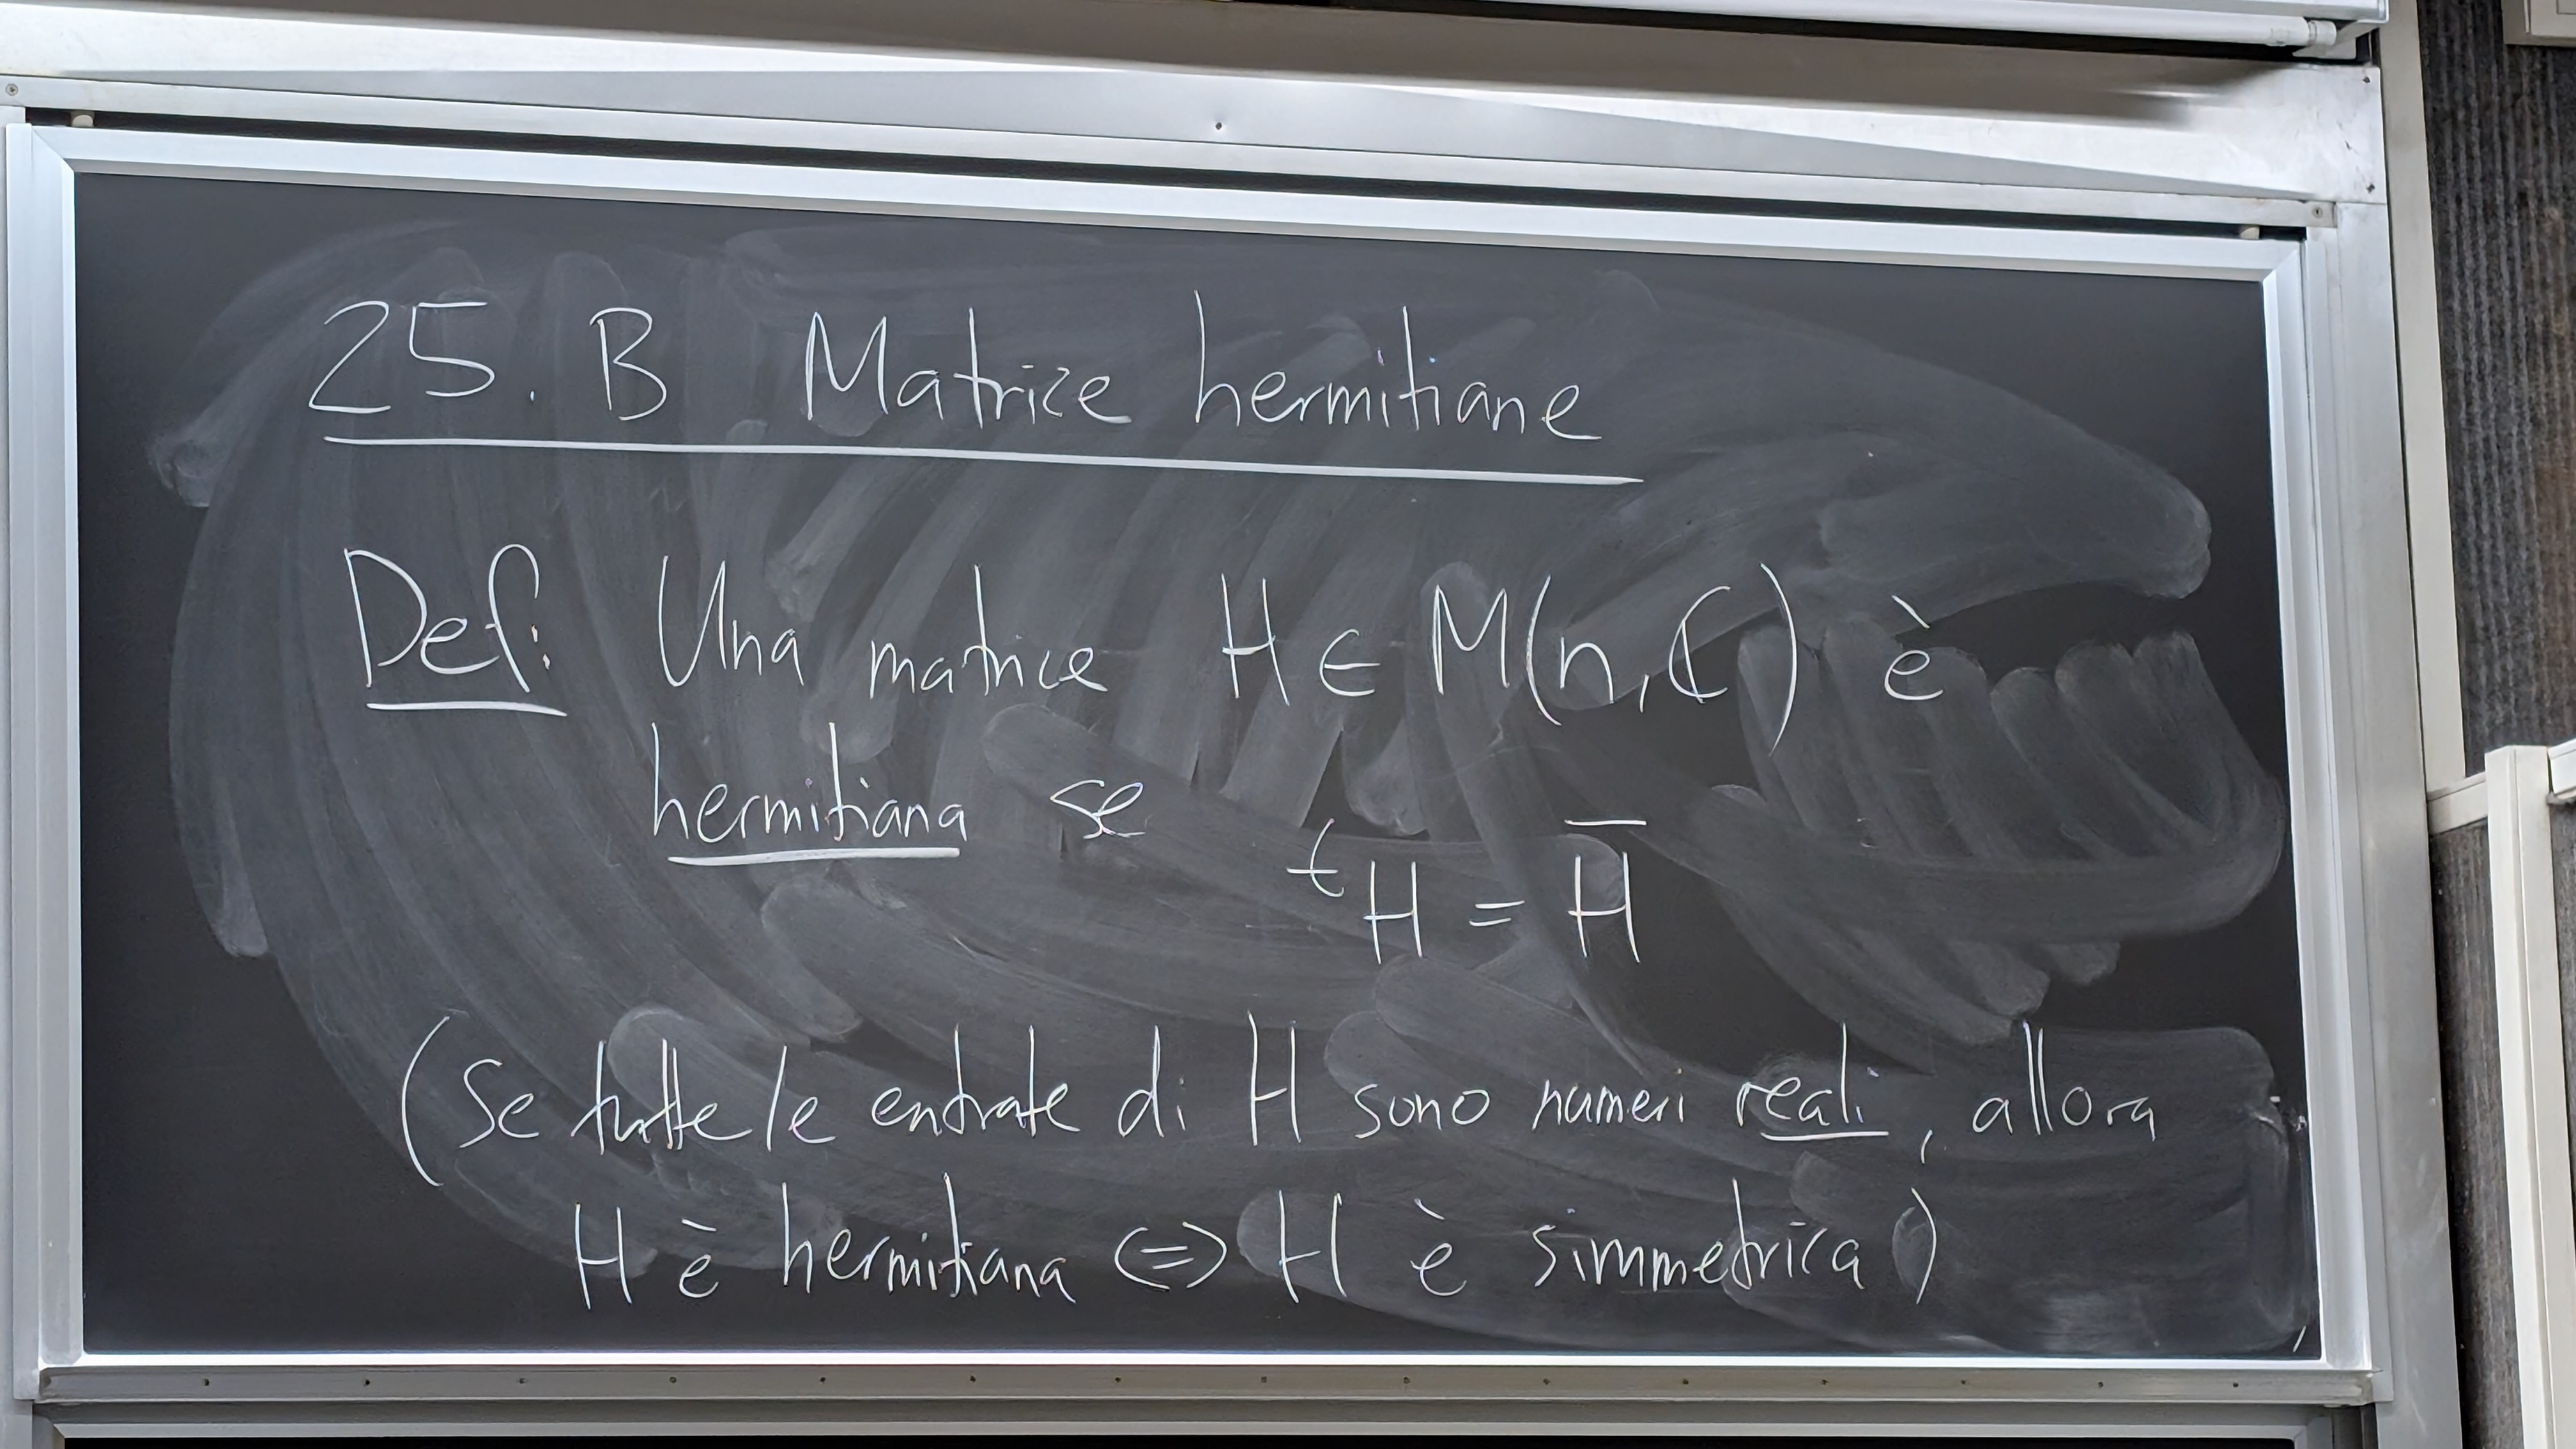 25. B Matrice hermitiane
Def: Una matrice H ∈ M(n, ℂ) è
hermitiana se
ᵗH = H̅
(Se tutte le entrate di H sono numeri reali, allora
H è hermitiana <=> H è simmetrica)